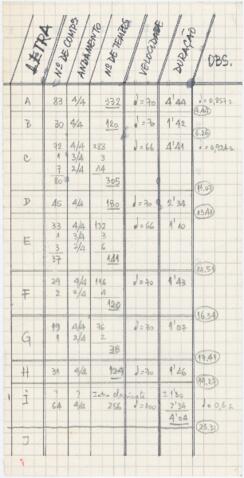 LETRA Nº DE COMPS ANDAMENTO Nº DE TEMPOS VELOCIDADE DURAÇÃO OBS.
A 83 4/4 332 ♩=70 4'44 ♩=0,857s
B 30 4/4 120 ♩=70 1'42
6.26
72 4/4 288 ♩=66 4'41
C 1 3/4 3
7 2/4 14
80 305
11.07
D 45 4/4 180 ♩=70 2'34
13.41
33 4/4 132 ♩=66 1'10
E 1 3/4 3
3 2/4 6
37 141
14.51
29 4/4 116 ♩=70 1'43
F 2 2/4 4
120
16.34
19 4/4 76 ♩=70 1'07
G 1 2/4 2
78
17.41
H 31 4/4 124 ♩=70 1'46
I ? ? 1'30
64 4/4 256 ♩=100 2'34 ♩=0,6s
4'04
J